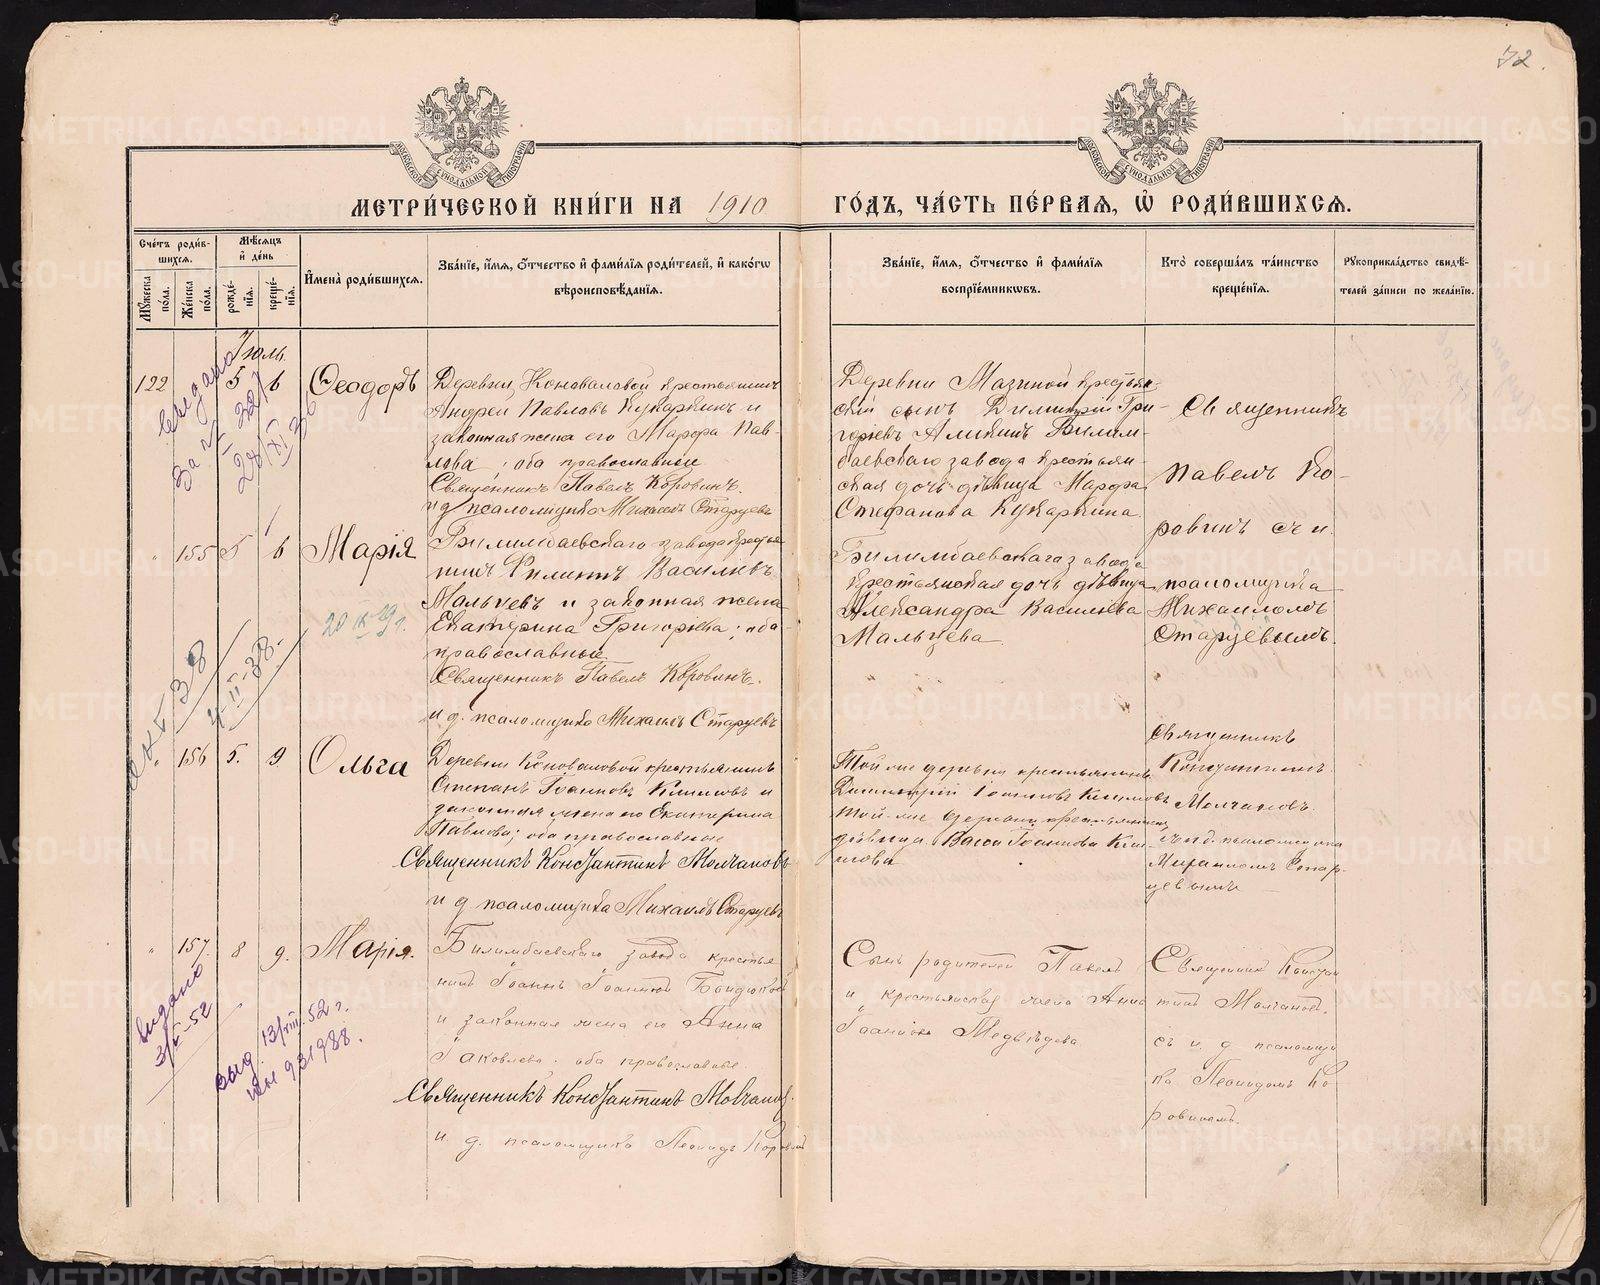 72.
МЕТРИ́ЧЕСКОЙ КНИ́ГИ НА 1910 ГО́ДЪ, ЧА́СТЬ ПЕ́РВАѦ, Ѽ РОДИ́ВШИХСѦ.
Сче́тъ роди́в-
шихсѧ.
Мꙋ́жеска по́ла.
Же́нска по́ла.
Мѣ́сѧцъ
и҆ де́нь
рожде́-
нїѧ.
креще́-
нїѧ.
И҆мена̀ роди́вшихсѧ.
Зва́нїе, и҆́мѧ, ѻ҆́тчество и҆ фами́лїѧ роди́телей, и҆ како́гѡ
вѣроисповѣ́данїѧ.
Зва́нїе, и҆́мѧ, ѻ҆́тчество и҆ фами́лїѧ
воспрїе́мниковъ.
Кто̀ соверша́лъ та́инство
креще́нїѧ.
Рꙋкоприкла́дство свидѣ́-
телей за́писи по жела́нїю.
Іюль
122
5
6
Ѳеодоръ
Деревни Коноваловой крестьянинъ
Андрей Павловъ Кукаркинъ и
законная жена его Марѳа Пав-
лова; оба православные
Священникъ Павелъ Коровинъ.
и д псаломщика Михаилъ Старцевъ
Деревни Мазиной крестьян-
скій сынъ Димитрій Гри-
горіевъ Аликинъ Билим-
баевскаго завода крестьян-
ская дочь дѣвица Марѳа
Стефанова Кукаркина
Священникъ
Павелъ Ко-
ровинъ съ и.
псаломщика
Михаиломъ
Старцевымъ.
"
155
5
6
Марія
Билимбаевскаго завода крестья
нинъ Филиппъ Василіевъ
Мальцевъ и законная жена
Екатерина Григоріева; оба
православные
Священникъ Павелъ Коровинъ.
и д. псаломщика Михаилъ Старцевъ
Билимбаевскаго завода
крестьянская дочь дѣвица
Александра Василіева
Мальцева
"
156
5.
9
Ольга
Деревни Коноваловой крестьянинъ
Степанъ Іоанновъ Климовъ и
законная жена его Екатерина
Павлова; оба православные
Священникъ Константинъ Молчановъ
и д псаломщика Михаилъ Старцевъ
Той же деревни крестьянинъ
Димитрій Іоанновъ Климовъ
той-же деревни крестьянская
дѣвица Васса Іоаннова Кли-
мова
Священникъ
Константинъ
Молчановъ
съ и д. псаломщика
Михаиломъ Стар-
цевымъ
"
157
8
9.
Марія.
Билимбаевскаго завода крестья
нинъ Іоаннъ Іоанновъ
и законная жена его Анна
Іаковлева. оба православные.
Священникъ Константинъ Молчановъ.
и д. псаломщика Леонидъ Коровинъ
Сынъ родителей Павелъ
и крестьянская жена Анна
Іоаннова Медвѣдева
Священникъ Констан
тинъ Молчановъ.
съ и д псаломщи
ка Леонидомъ Ко
ровинымъ.
20 IX 49 г.
4-II-38.
видано
3/V-52
выд. 13/VIII.52 г.
931988.
METRIKI.GASO-URAL.RU